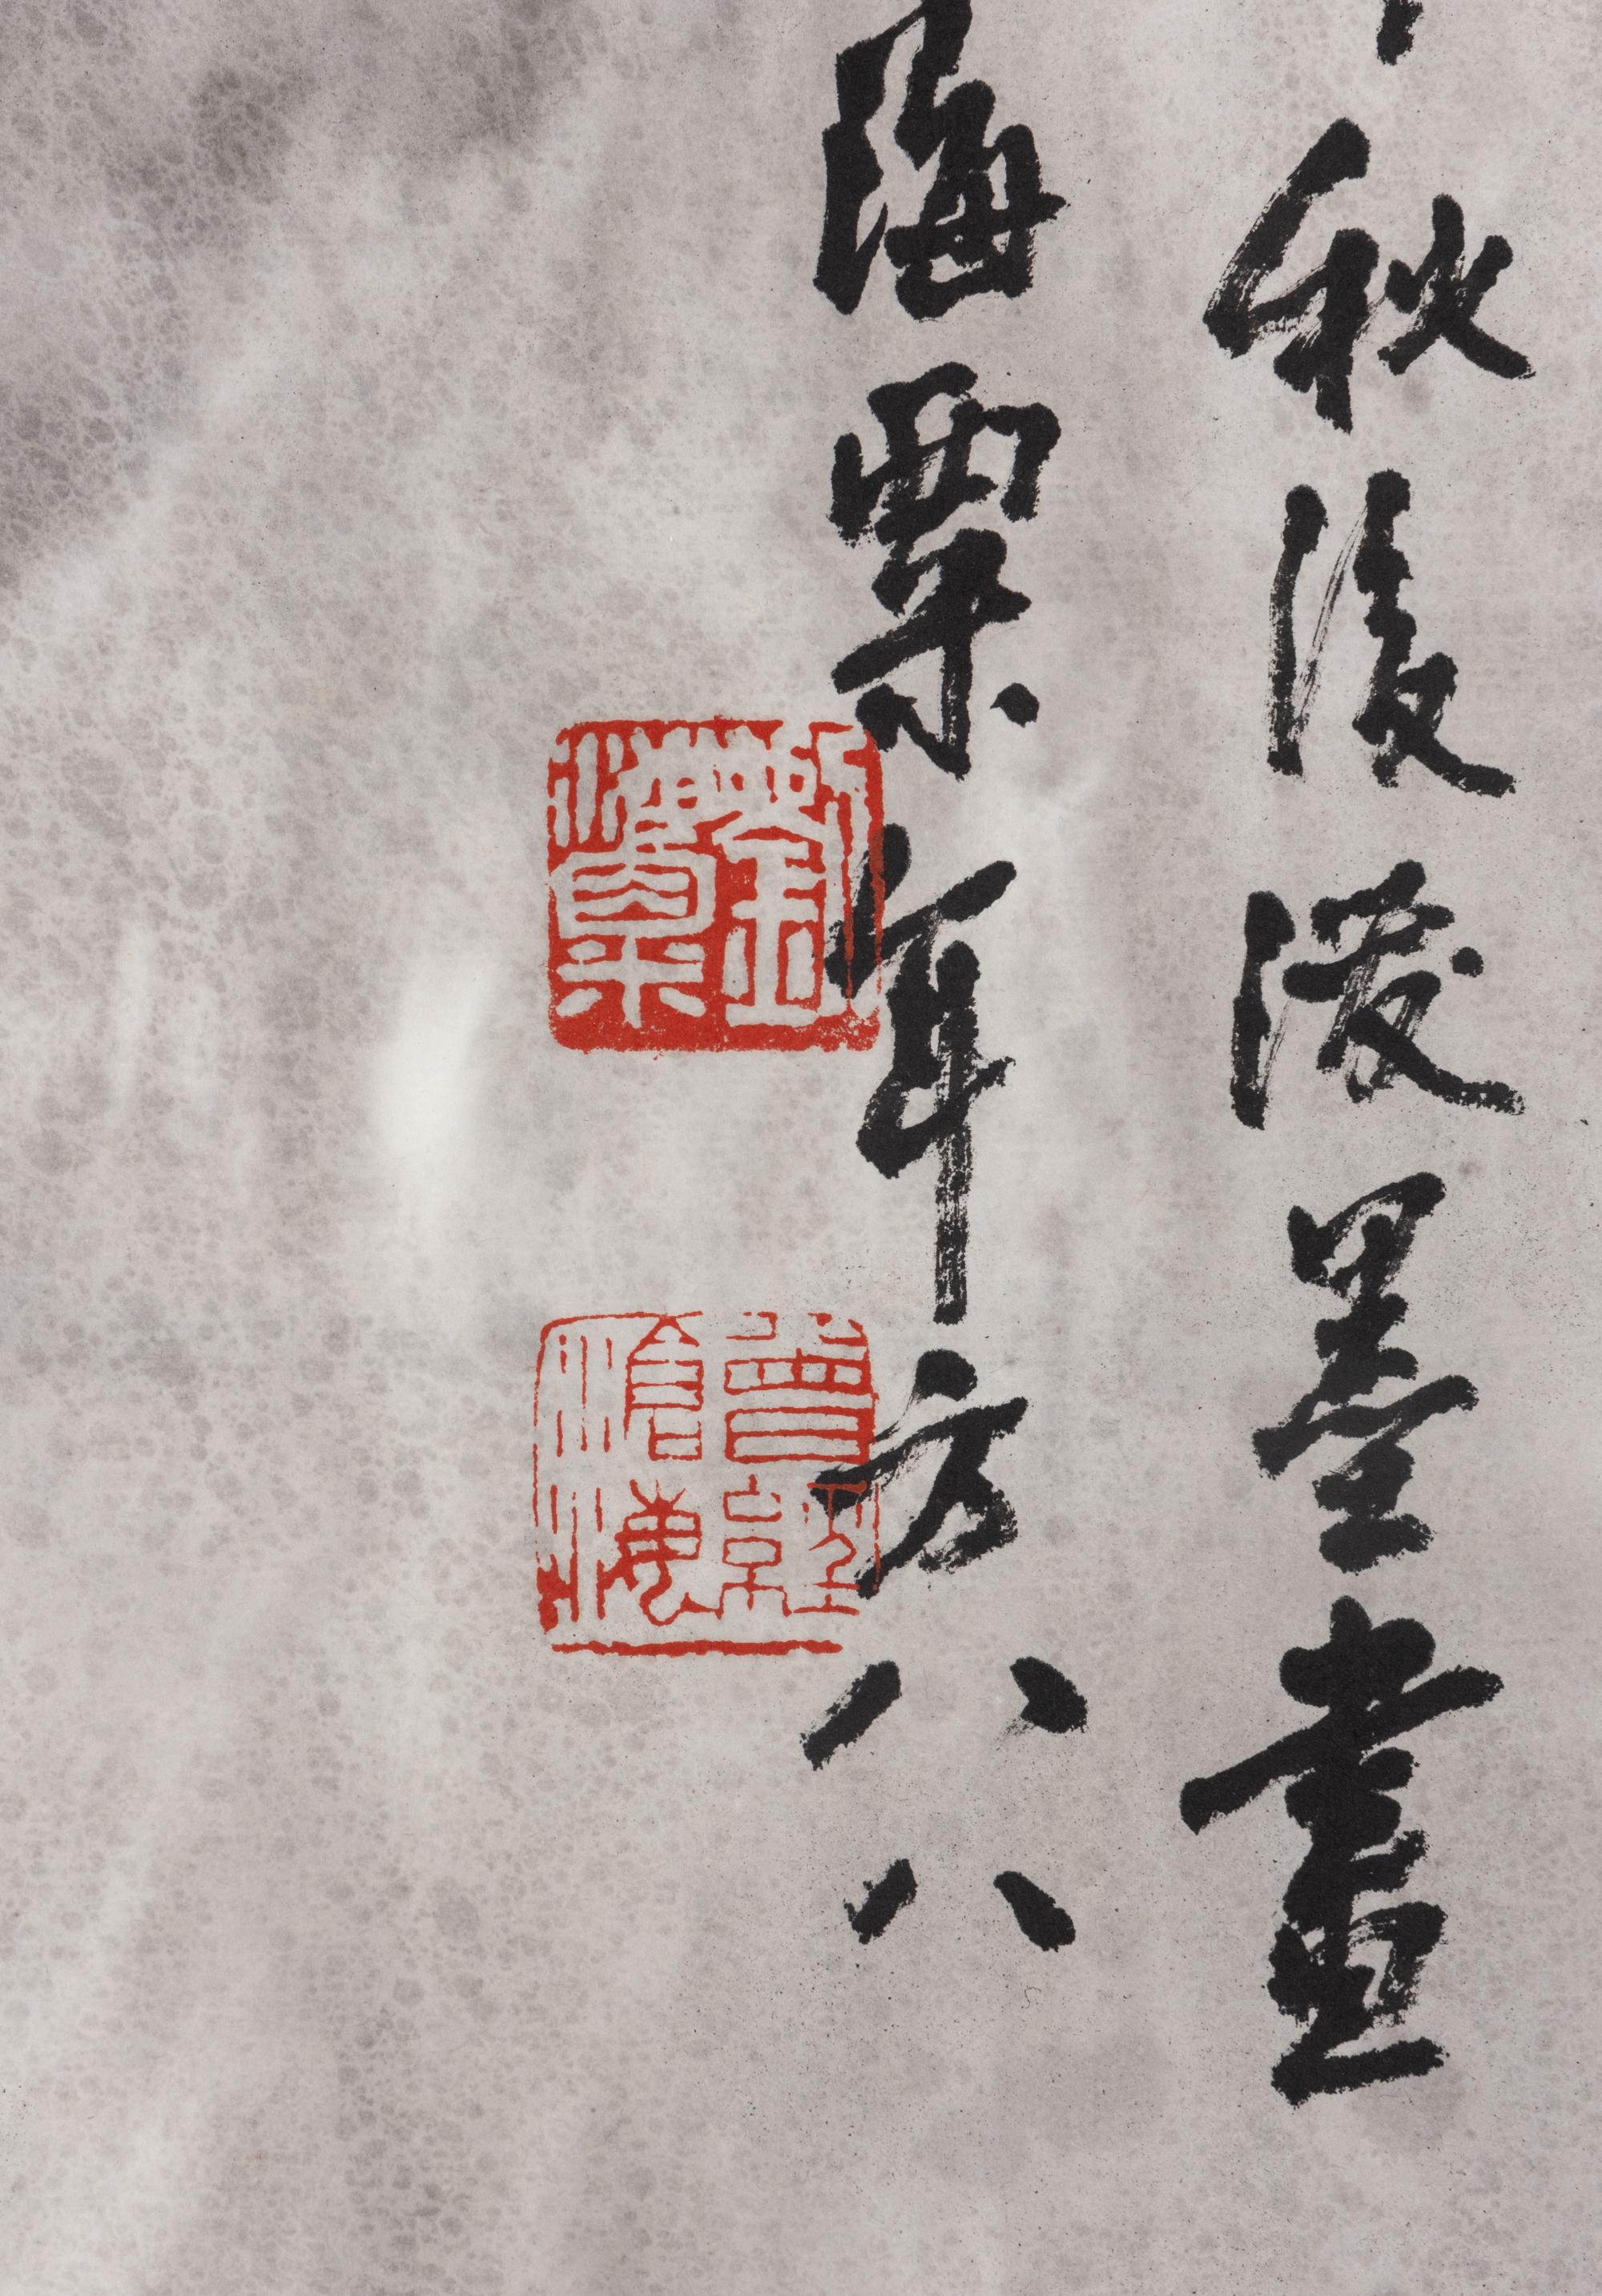 秋後潑墨畫
海粟年方八八
劉海粟
曾經滄海